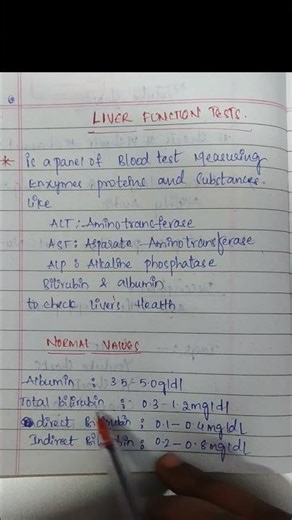 LIVER FUNCTION TESTS.
* is a panel of Blood test Measuring
Enzymes, proteins and substances.
like
ALT :- Aminotransferase
AST : Asparate Aminotransferase
ALP : Alkaline phosphatase
Bilirubin & albumin
to check liver's Health
NORMAL VALUES
Albumin : 3.5-5.0g/dl
Total bilirubin : 0.3-1.2mg/dl
direct Bilirubin : 0.1-0.4mg/dl
Indirect Bilirubin : 0.2-0.8mg/dl